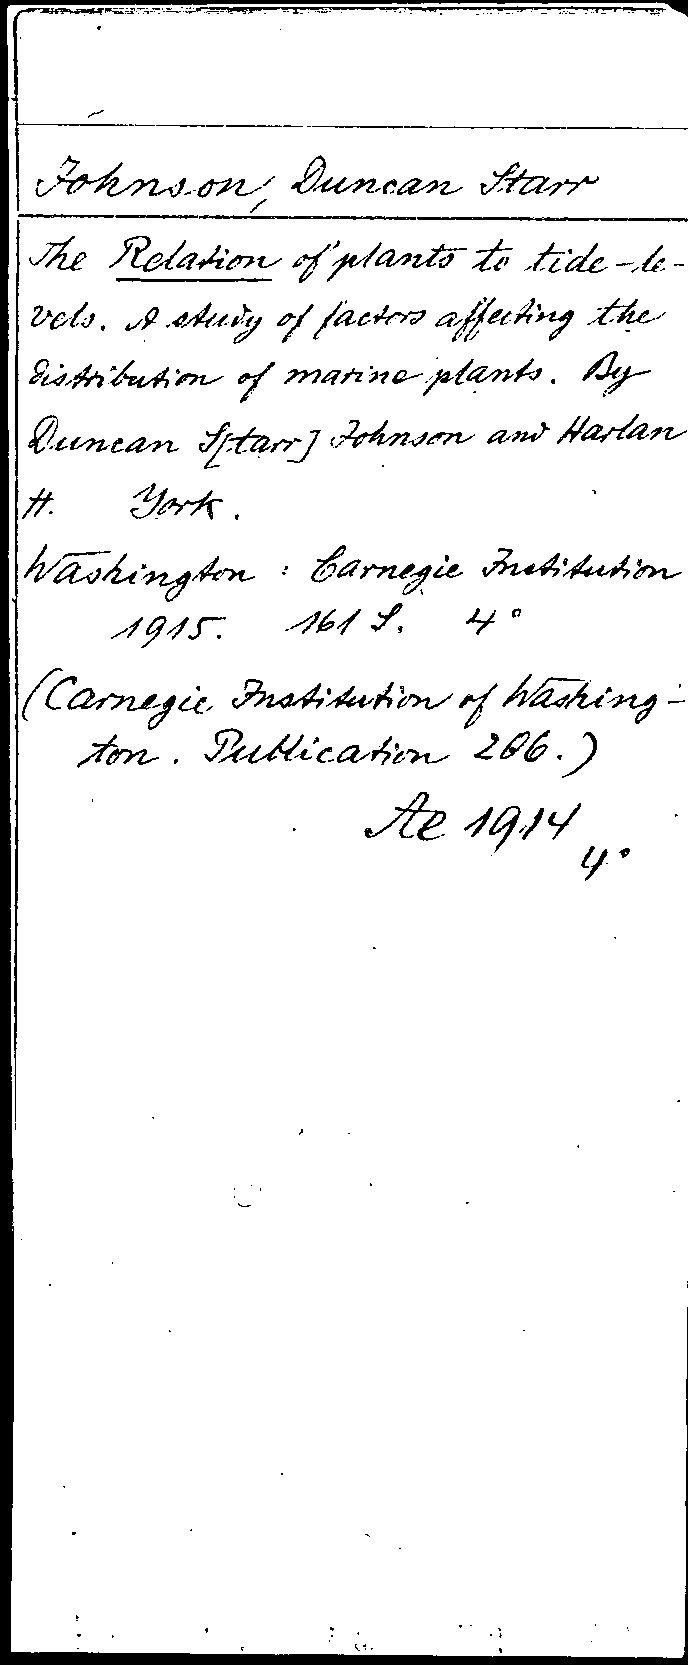 Johnson, Duncan Starr
The Relation of plants to tide-le-
vels. A study of factors affecting the
distribution of marine plants. By
Duncan S[tarr] Johnson and Harlan
H. York.
Washington: Carnegie Institution
1915. 161 S. 4°
(Carnegie Institution of Washing-
ton. Publication 206.)
Ae 1914
4°